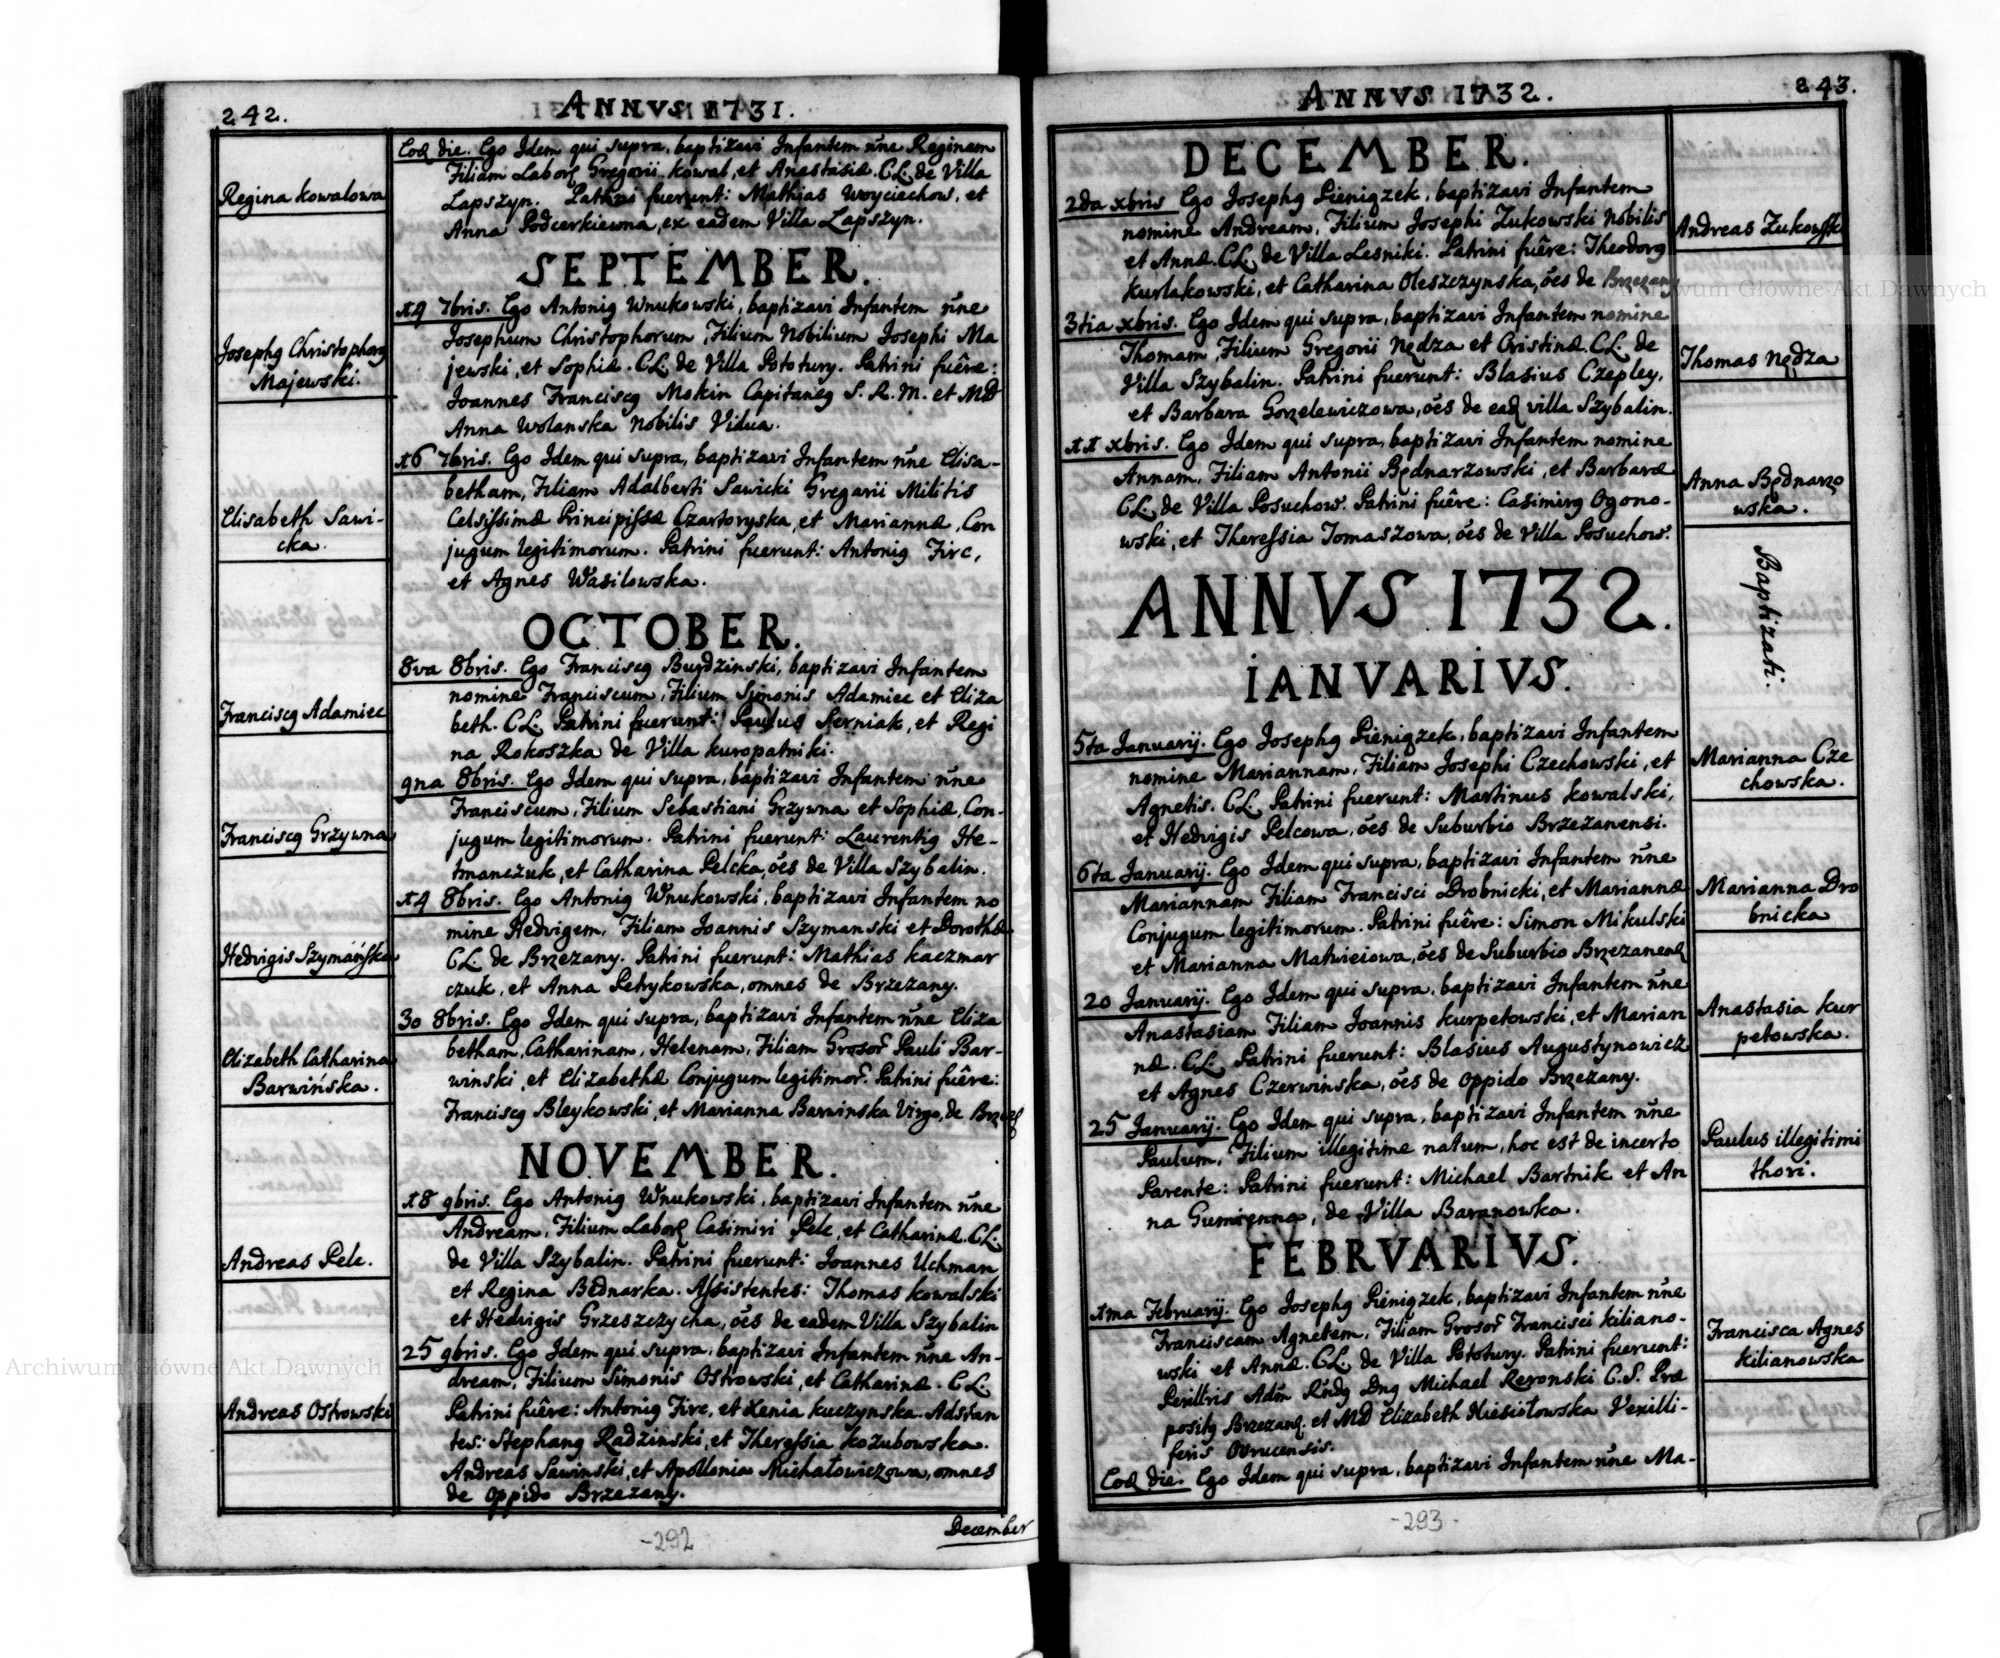 242.
ANNVS 1731.
Regina Kowalowa
Eoď die. Ego Idem qui supra, baptizavi Infantem nn̄e Reginam
Filiam Labor. Gregorii Kowal, et Anastasiæ. CL. de Villa
Lapszyn. Patrini fuerunt: Mathias Woyciechow, et
Anna Podcerkiewna, ex eadem Villa Lapszyn.
SEPTEMBER.
Josephꝯ Christophorꝯ
Majewski.
14 7bris. Ego Antoniꝯ Wnukowski, baptizavi Infantem nn̄e
Josephum Christophorum, Filium Nobilium Josephi Ma
jewski, et Sophiæ. CL. de Villa Potutury. Patrini fuêre:
Joannes Franciscꝯ Mokin Capitaneꝯ S. R. M. et MD
Anna Wolanska Nobilis Vidua.
Elisabeth Sawi-
cka.
16 7bris. Ego Idem qui supra, baptizavi Infantem nn̄e Elisa-
betham, Filiam Adalberti Sawicki Gregarii Militis
Celsissimæ Principissæ Czartoryska, et Mariannæ, Con
jugum legitimorum. Patrini fuerunt: Antoniꝯ Firc,
et Agnes Wasilowska.
OCTOBER.
Franciscꝯ Adamiec
8va 8bris. Ego Franciscꝯ Burdzinski, baptizavi Infantem
nomine Franciscum, Filium Simonis Adamiec et Eliza
beth. CL. Patrini fuerunt: Paulus Serniak, et Regi
na Rokoszka de Villa Kuropatniki.
Franciscꝯ Grzywna
9na 8bris. Ego Idem qui supra, baptizavi Infantem nn̄e
Franciscum, Filium Sebastiani Grzywna et Sophiæ, Con-
jugum legitimorum. Patrini fuerunt: Laurentiꝯ He-
tmanczuk, et Catharina Pelcka, ões de Villa Szybalin.
Hedvigis Szymáńska
14 8bris. Ego Antoniꝯ Wnukowski, baptizavi Infantem no
mine Hedvigem, Filiam Joannis Szymanski et Dorothæ
CL. de Brzezany. Patrini fuerunt: Mathias Kaczmar
czuk, et Anna Petrykowska, omnes de Brzezany.
Elizabeth Catharina
Barwińska.
30 8bris. Ego Idem qui supra, baptizavi Infantem nn̄e Eliza
betham, Catharinam, Helenam, Filiam Grosor̃ Pauli Bar-
winski, et Elizabethæ Conjugum legitimor̃. Patrini fuêre:
Franciscꝯ Bleykowski, et Marianna Barwinska Virgo, de Brzez
NOVEMBER.
Andreas Pelc.
18 9bris. Ego Antoniꝯ Wnukowski, baptizavi Infantem nn̄e
Andream, Filium Labor. Casimiri Pelc, et Catharinæ. CL.
de Villa Szybalin. Patrini fuerunt: Joannes Uchman
et Regina Bednarka. Assistentes: Thomas Kowalski
et Hedvigis Grzeszczycha, ões de eadem Villa Szybalin
Andreas Ostrowski
25 9bris. Ego Idem qui supra, baptizavi Infantem nn̄e An-
dream, Filium Simonis Ostrowski, et Catharinæ. CL.
Patrini fuêre: Antoniꝯ Firc, et Xenia Kuczynska. Adstan
tes: Stephanꝯ Radzinski, et Theressia Kozubowska.
Andreas Sawinski, et Apollonia Michałowiczowa, omnes
de Oppido Brzezany.
December
-292
ANNVS 1732.
243.
DECEMBER.
2da xbris Ego Josephꝯ Pieniązek, baptizavi Infantem
nomine Andream, Filium Josephi Zukowski Nobilis
et Annæ. CL. de Villa Lesniki. Patrini fuêre: Theodorꝯ
Kurlakowski, et Catharina Oleszczynska, ões de Brzezany
Andreas Zukowsk
3tia xbris. Ego Idem qui supra, baptizavi Infantem nomine
Thomam, Filium Gregorii Nędza et Cristinæ. CL. de
Villa Szybalin. Patrini fuerunt: Blasius Czepley,
et Barbara Gorzelewiczowa, ões de eaď villa Szybalin.
Thomas Nędza
11 xbris. Ego Idem qui supra, baptizavi Infantem nomine
Annam, Filiam Antonii Będnarzowski, et Barbaræ
CL. de Villa Posuchow. Patrini fuêre: Casimirꝯ Ogono-
wski, et Theressia Tomaszowa, ões de Villa Posuchow.
Anna Będnarzo
wska.
ANNVS 1732.
Baptizati.
IANVARIVS.
5ta Januarij. Ego Josephꝯ Pieniązek, baptizavi Infantem
nomine Mariannam, Filiam Josephi Czechowski, et
Agnetis. CL. Patrini fuerunt: Martinus Kowalski,
et Hedvigis Pelcowa, ões de Suburbio Brzezanensi.
Marianna Cze
chowska.
6ta Januarij. Ego Idem qui supra, baptizavi Infantem nn̄e
Mariannam Filiam Francisci Drobnicki, et Mariannæ
Conjugum legitimorum. Patrini fuêre: Simon Mikulski
et Marianna Matwieiowa, ões de Suburbio Brzezanen
Marianna Dro
bnicka
20 Januarij. Ego Idem qui supra, baptizavi Infantem nn̄e
Anastasiam Filiam Joannis Kurpetowski, et Marian
næ. CL. Patrini fuerunt: Blasius Augustynowicz
et Agnes Czerwinska, ões de Oppido Brzezany.
Anastasia Kur
petowska.
25 Januarij. Ego Idem qui supra, baptizavi Infantem nn̄e
Paulum, Filium illegitime natum, hoc est de incerto
Parente: Patrini fuerunt: Michael Bartnik et An
na Gumienna, de Villa Baranowka.
Paulus illegitimi
thori.
FEBRVARIVS.
1ma Februarij. Ego Josephꝯ Pieniązek, baptizavi Infantem nn̄e
Franciscam Agnetem, Filiam Grosor̃ Francisci Kiliano-
wski et Annæ. CL. de Villa Potutury. Patrini fuerunt:
Perilltris Adm̃ Rñdꝯ Dnꝯ Michael Reronski C.S. Præ
positꝯ Brzezanꝯ. et MD Elizabeth Niesiołowska Vexilli-
feris Ovrucensis.
Francisca Agnes
Kilianowska
Eoď die. Ego Idem qui supra, baptizavi Infantem nn̄e Ma-
-293-
Archiwum Główne Akt Dawnych
Archiwum Główne Akt Dawnych